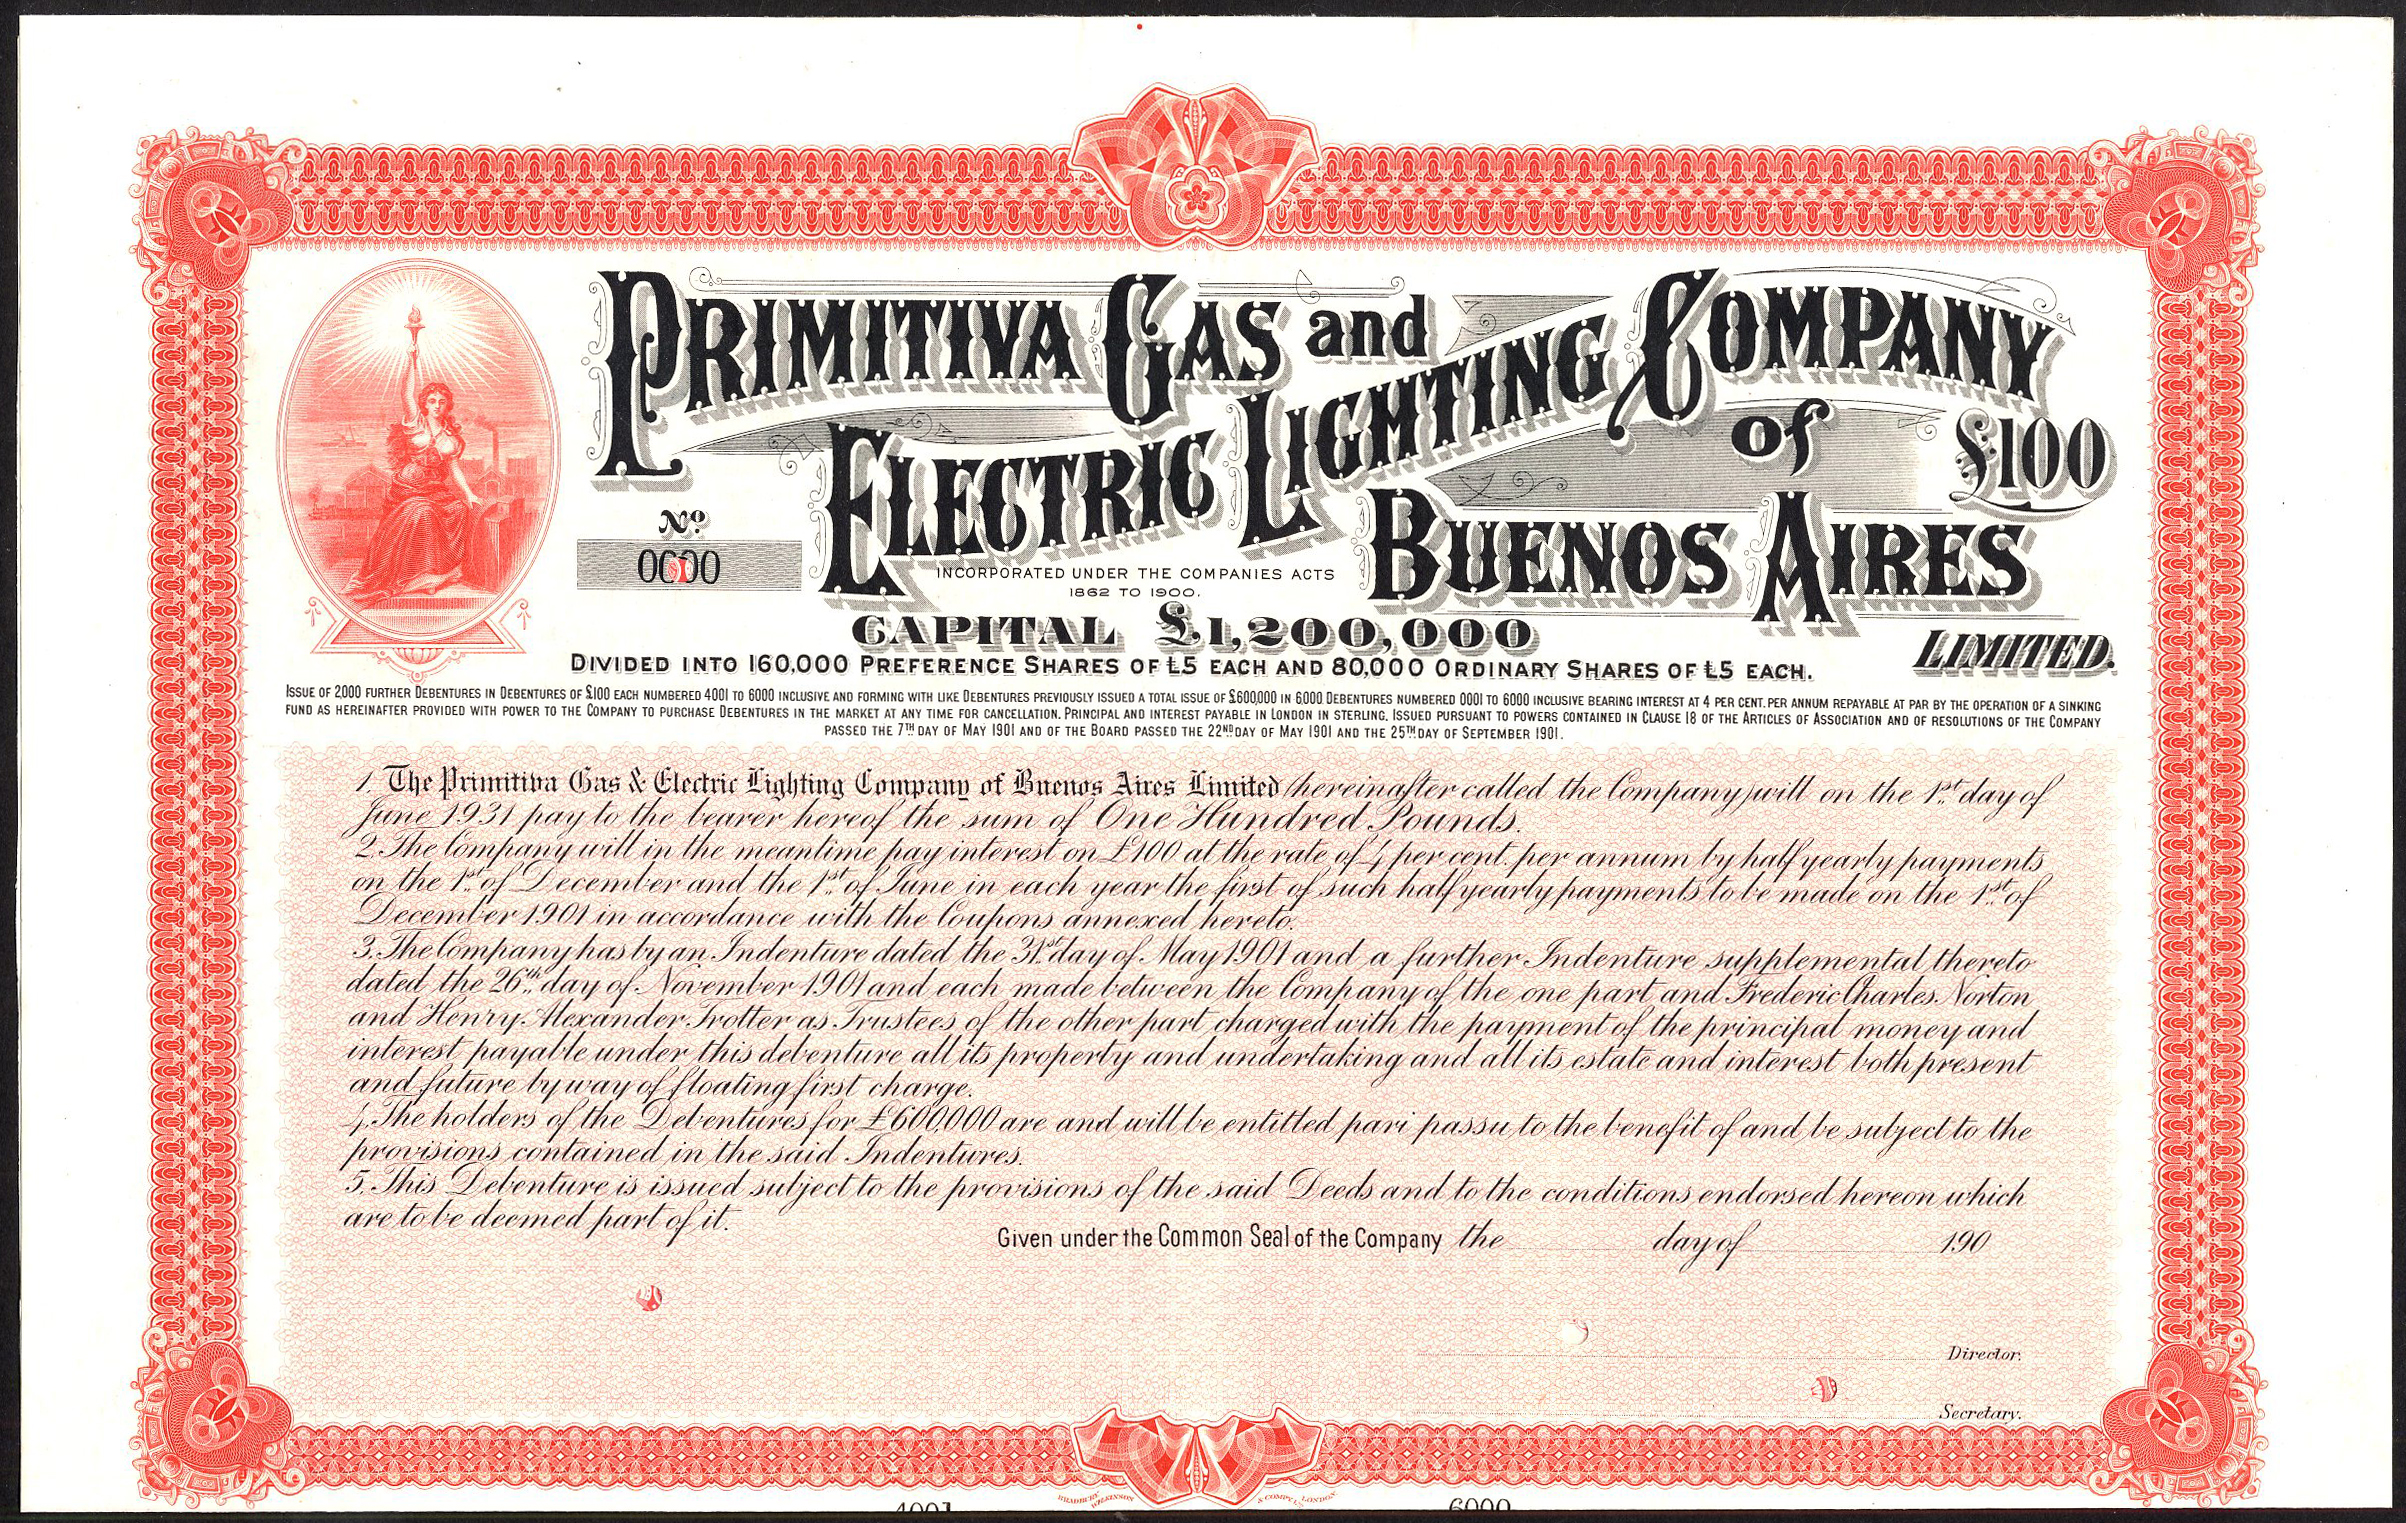 PRIMITIVA GAS and
ELECTRIC LIGHTING COMPANY
of
BUENOS AIRES
£100
No
0000
INCORPORATED UNDER THE COMPANIES ACTS
1862 TO 1900.
CAPITAL £1,200,000
LIMITED.
DIVIDED INTO 160,000 PREFERENCE SHARES OF £5 EACH AND 80,000 ORDINARY SHARES OF £5 EACH.
ISSUE OF 2000 FURTHER DEBENTURES IN DEBENTURES OF £100 EACH NUMBERED 4001 TO 6000 INCLUSIVE AND FORMING WITH LIKE DEBENTURES PREVIOUSLY ISSUED A TOTAL ISSUE OF £600,000 IN 6,000 DEBENTURES NUMBERED 0001 TO 6000 INCLUSIVE BEARING INTEREST AT 4 PER CENT. PER ANNUM REPAYABLE AT PAR BY THE OPERATION OF A SINKING
FUND AS HEREINAFTER PROVIDED WITH POWER TO THE COMPANY TO PURCHASE DEBENTURES IN THE MARKET AT ANY TIME FOR CANCELLATION. PRINCIPAL AND INTEREST PAYABLE IN LONDON IN STERLING. ISSUED PURSUANT TO POWERS CONTAINED IN CLAUSE 18 OF THE ARTICLES OF ASSOCIATION AND OF RESOLUTIONS OF THE COMPANY
PASSED THE 7TH DAY OF MAY 1901 AND OF THE BOARD PASSED THE 22ND DAY OF MAY 1901 AND THE 25TH DAY OF SEPTEMBER 1901.
1. The Primitiva Gas & Electric Lighting Company of Buenos Aires Limited (hereinafter called the Company) will on the 1st day of
June 1931 pay to the bearer hereof the sum of One Hundred Pounds.
2. The Company will in the meantime pay interest on £100 at the rate of 4 per cent. per annum by half yearly payments
on the 1st of December and the 1st of June in each year the first of such half yearly payments to be made on the 1st of
December 1901 in accordance with the Coupons annexed hereto.
3. The Company has by an Indenture dated the 31st day of May 1901 and a further Indenture supplemental thereto
dated the 26th day of November 1901 and each made between the Company of the one part and Frederic Charles Norton
and Henry Alexander Trotter as Trustees of the other part charged with the payment of the principal money and
interest payable under this debenture all its property and undertaking and all its estate and interest both present
and future by way of floating first charge.
4. The holders of the Debentures for £600,000 are and will be entitled pari passu to the benefit of and be subject to the
provisions contained in the said Indentures.
5. This Debenture is issued subject to the provisions of the said Deeds and to the conditions endorsed hereon which
are to be deemed part of it.
Given under the Common Seal of the Company the day of 190
Director.
Secretary.
BRADBURY WILKINSON & COMPY LD LONDON
4001 6000